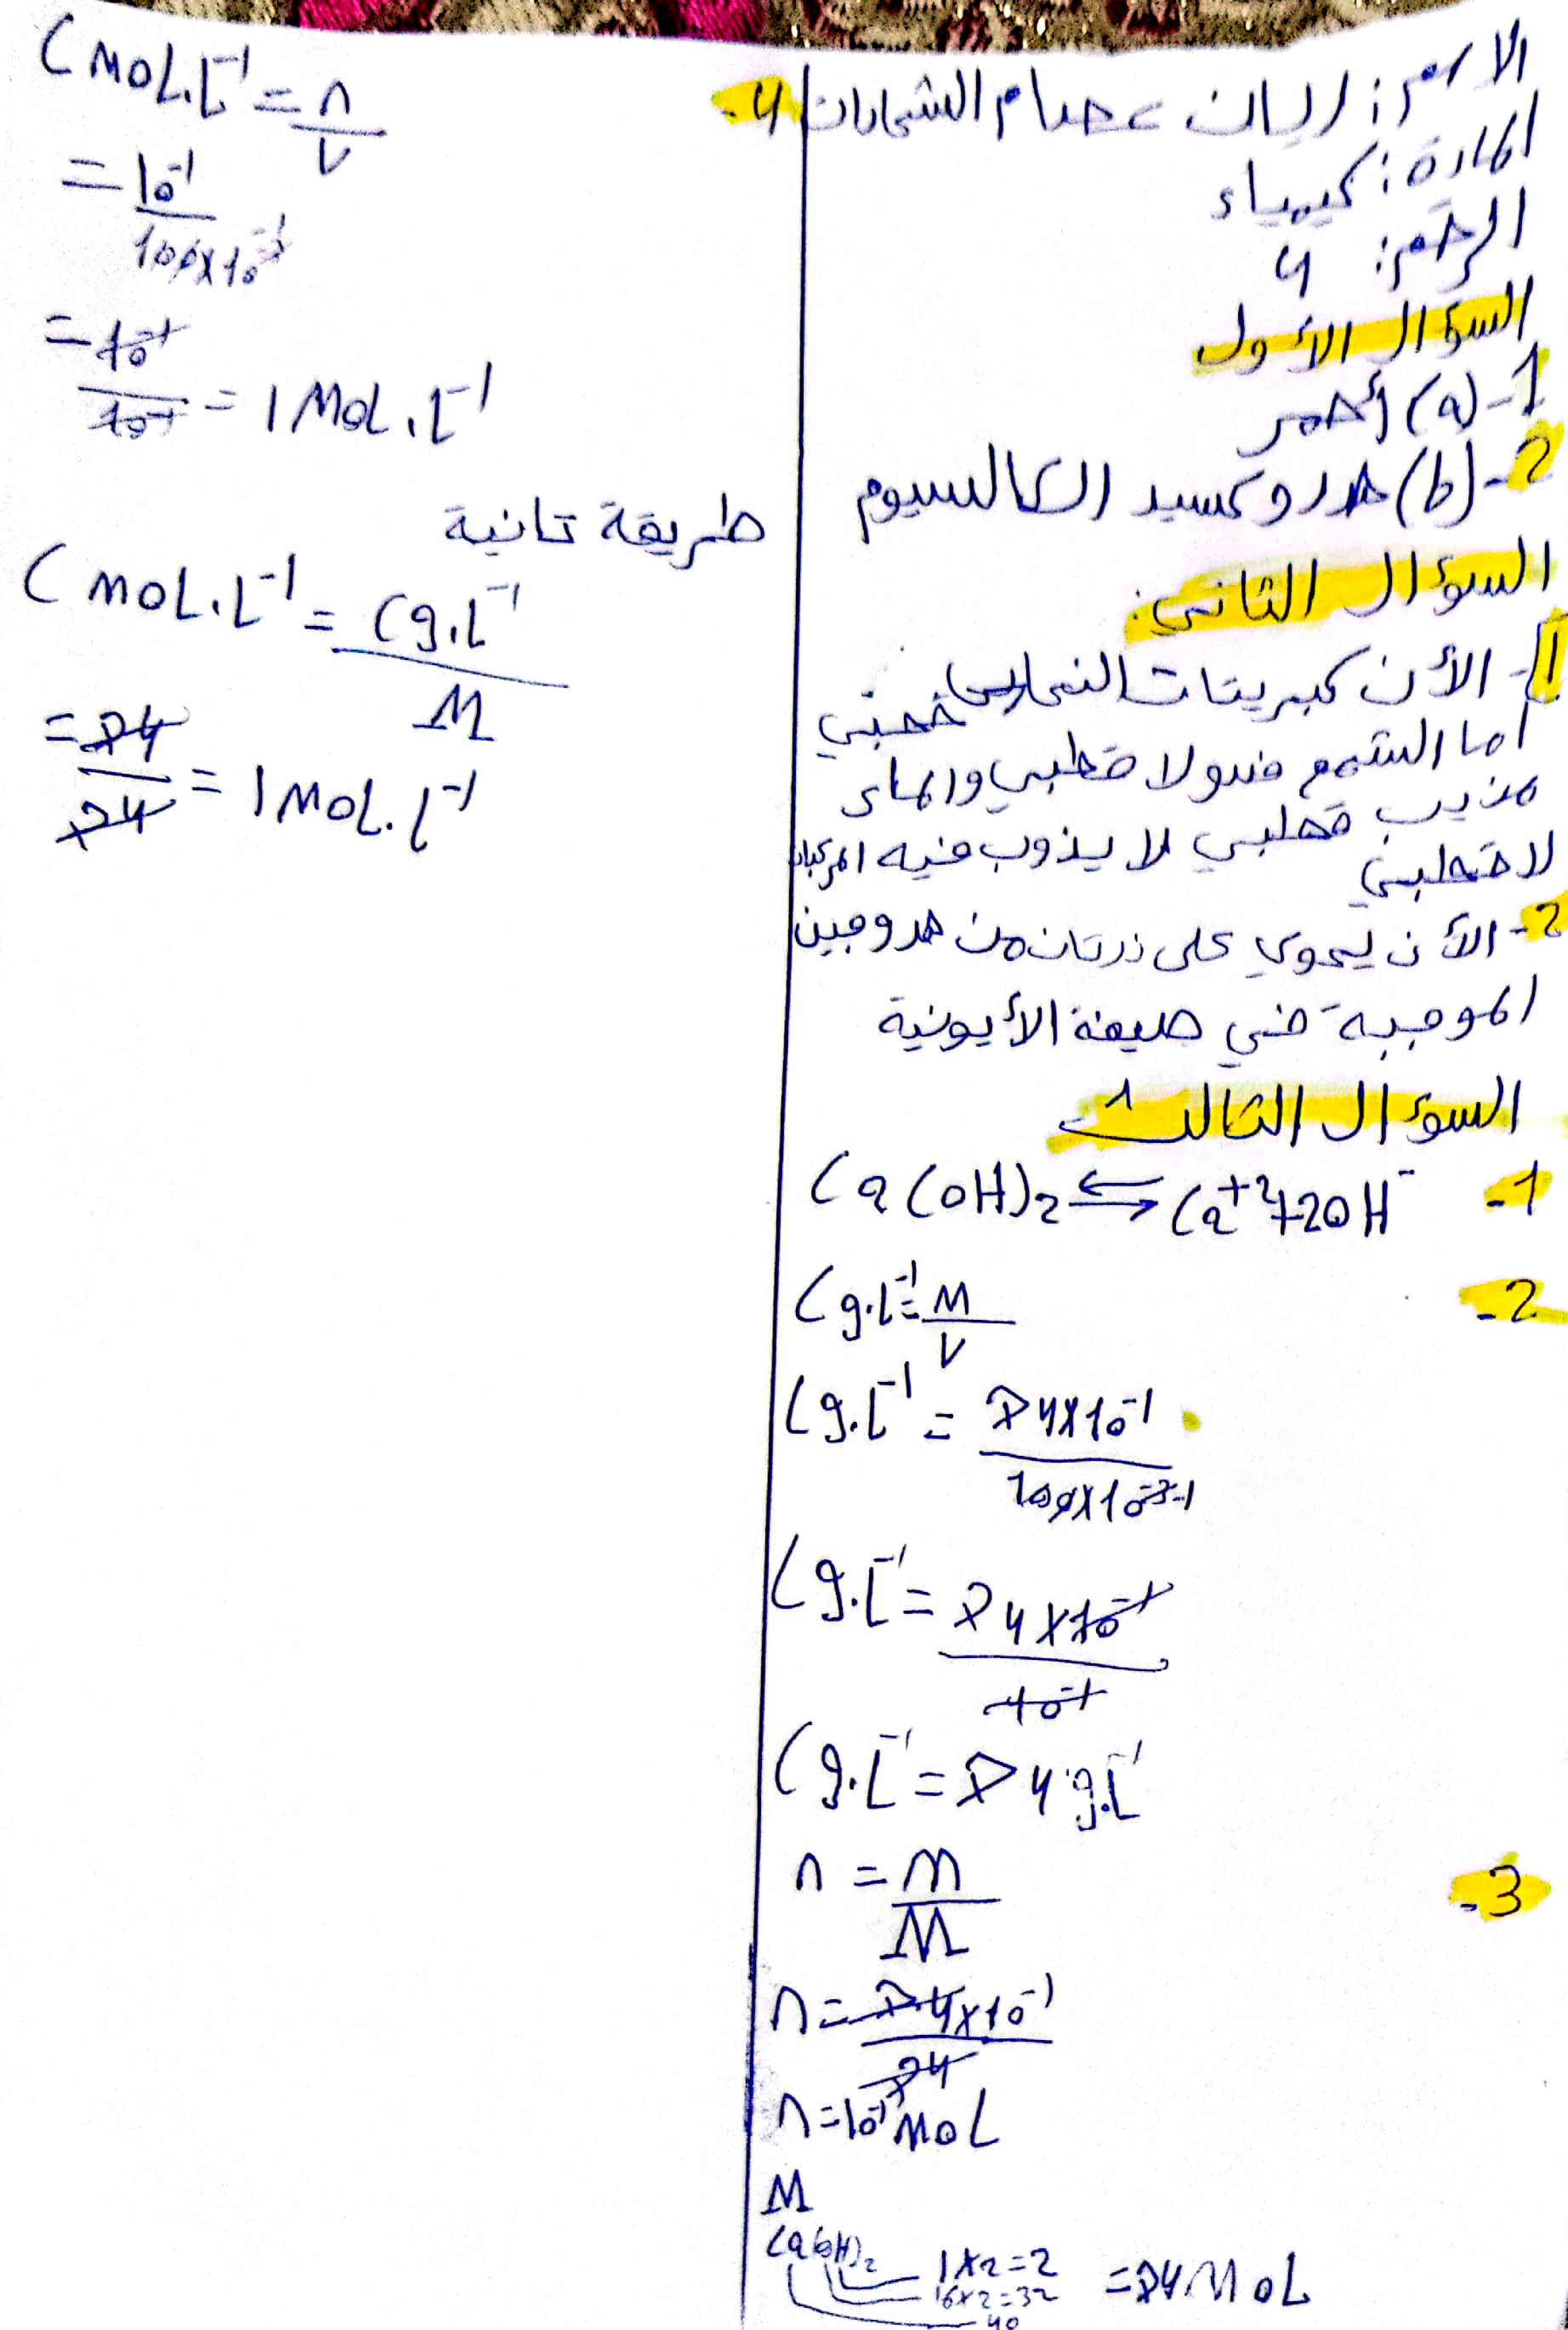 الاسم: ليان عصام الشحادات
المادة: كيمياء
الرقم: 4
السؤال الأول
1-(a) أحمر
2-(b) هدروكسيد الكالسيوم
السؤال الثاني:
1- الأن كبريتات النحاس قطبي
أما الشمع فهو لا قطبي والماء
مذيب قطبي لا يذوب فيه المركبات
لا قطبي
2- الأن يحوي على ذرتان من هدروجين
الموجبة في صيغة الأيونية
السؤال الثالث
1- Ca(OH)2 ⇆ Ca+2+2OH-
2- Cg.L-1 = M/V
Cg.L-1 = 74x10-1 / 100x10-3-1
Cg.L-1 = 74x10-1 / 10-1
Cg.L-1 = 74 g.L-1
3- n = m/M
n = 74x10-1 / 74
n = 10-1 MOL
M
Ca(OH)2 1x2=2
16x2=32 = 74 MOL
40
4- C MOL.L-1 = n/V
= 10-1 / 100x10-3-1
= 10-1 / 10-1 = 1 MOL.L-1
طريقة تانية
C MOL.L-1 = Cg.L-1 / M
= 74 / 74 = 1 MOL.L-1